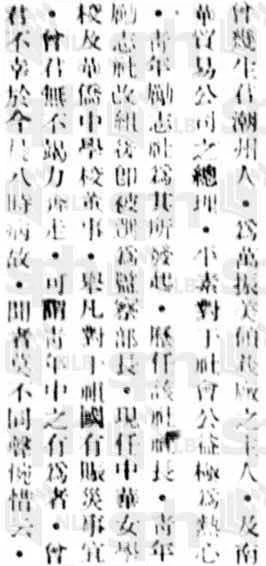 曾幾生君潮州人●爲萬振美僑批廠之主人●及南
華貿易公司之總理●平素對于社會公益極爲熱心
●靑年勵志社爲其所發起●歷任該社社長●靑年
勵志社改組後卽被選爲監察部長●現任中華女學
校及華僑中學校董事●舉凡對于祖國有賑災事宜
●曾君無不竭力奔走●可謂靑年中之有爲者●曾
君不幸於今晨八時病故●聞者莫不同聲惋惜云●